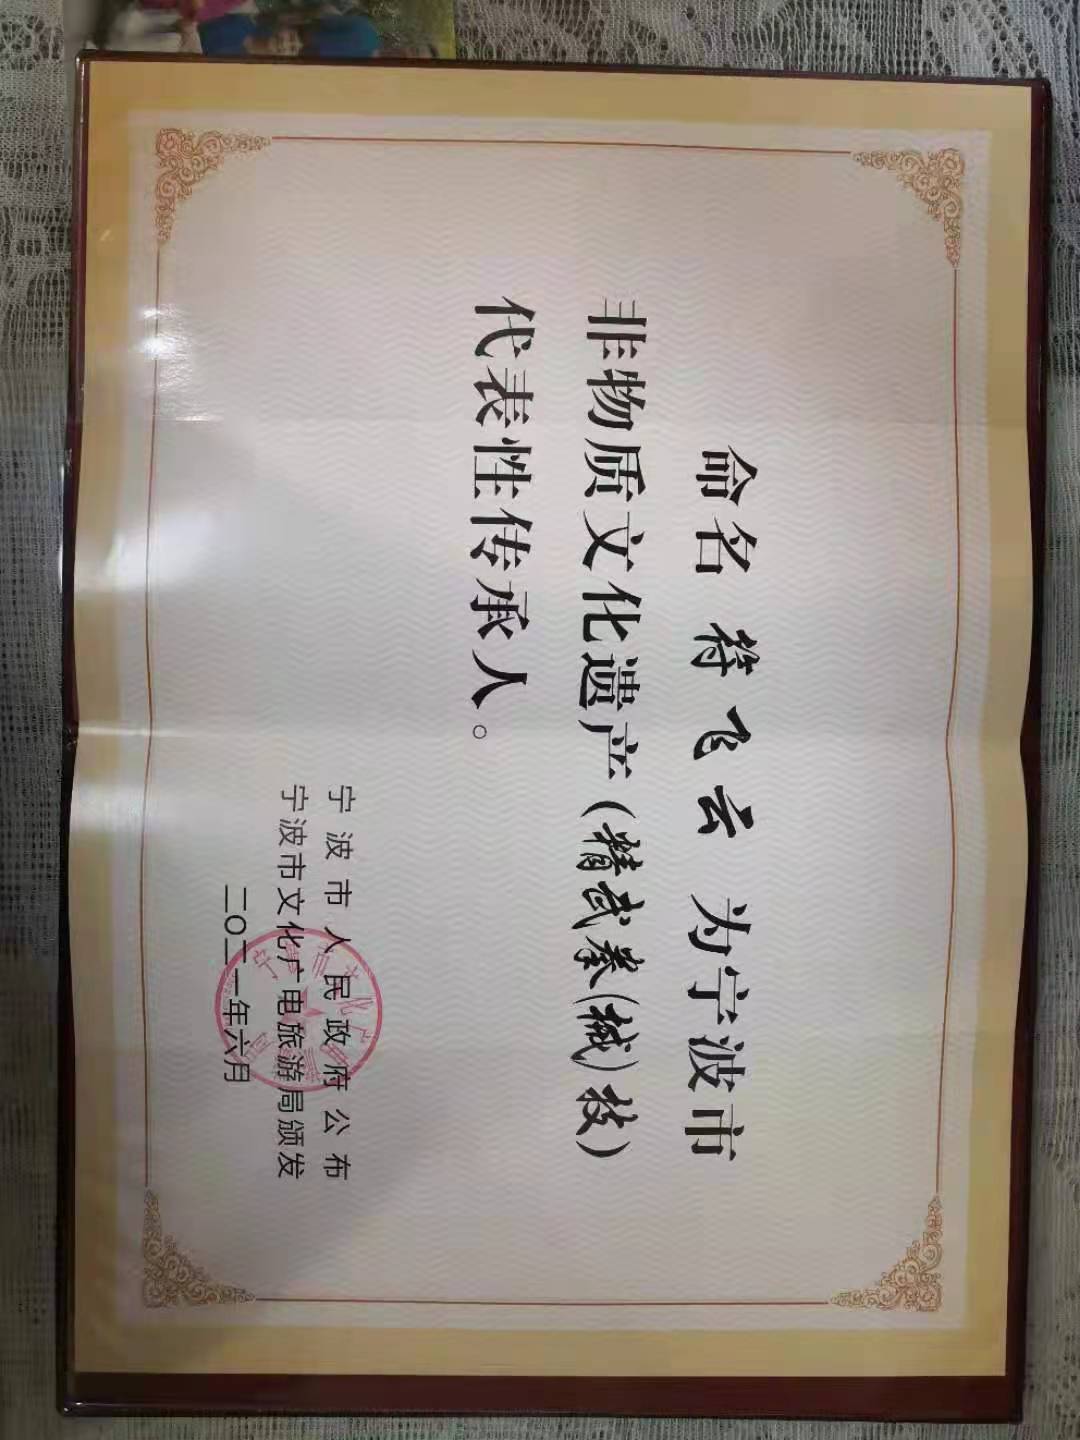 命名 符飞云 为宁波市
非物质文化遗产(精武拳(械)技)
代表性传承人。
宁波市人民政府公布
宁波市文化广电旅游局颁发
二〇二一年六月